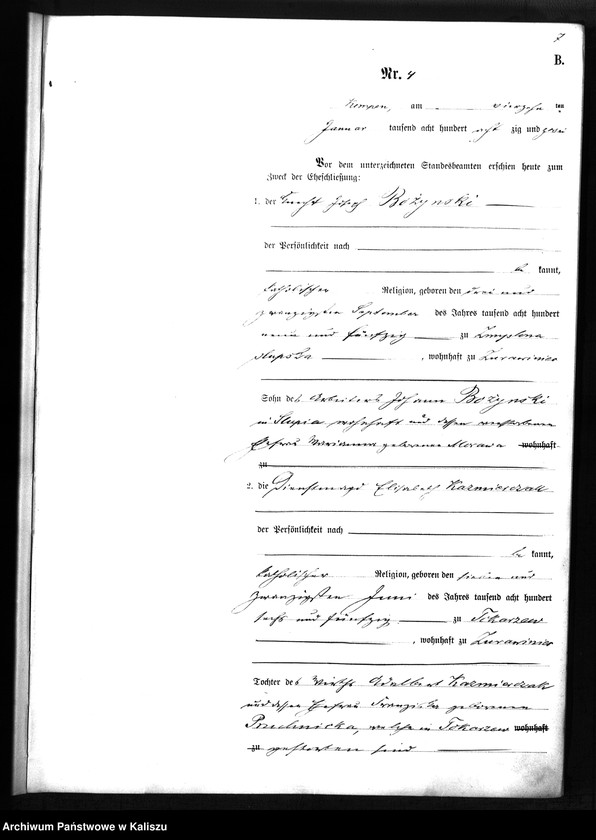 7
B.
Nr. 4
Kempen, am vierzehn ten
Januar tausend acht hundert acht zig und zwei
Vor dem unterzeichneten Standesbeamten erschien heute zum
Zweck der Eheschließung:
1. der Knecht Josef Bożynski
der Persönlichkeit nach
be kannt,
katholischer Religion, geboren den drei und
zwanzigsten September des Jahres tausend acht hundert
neun und fünfzig zu
Slupska, wohnhaft zu Zurawiniec
Sohn des Arbeiters Johann Bożynski
in Slupia wohnhaft und dessen verstorbenen
Ehefrau Marianna geborenen Morawa wohnhaft
zu
2. die Dienstmagd Elisabeth Kazmierczak
der Persönlichkeit nach
be kannt,
katholischer Religion, geboren den sieben und
zwanzigsten Juni des Jahres tausend acht hundert
sechs und fünfzig zu Tokarzew
, wohnhaft zu Zurawiniec
Tochter des Wirths Adalbert Kazmierczak
und dessen Ehefrau Franziska geborenen
welche in Tokarzew wohnhaft
zu gestorben sind
Archiwum Państwowe w Kaliszu